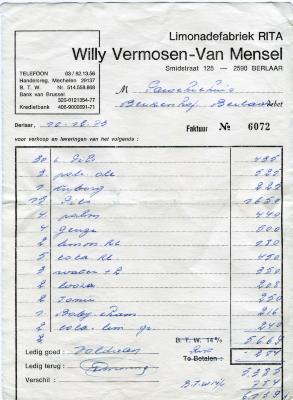 Limonadefabriek RITA
Willy Vermosen-Van Mensel
Smidstraat 125 — 2590 BERLAAR
TELEFOON 03 / 82.13.56
Handelsreg. Mechelen 29137
B. T. W. Nr. 514.558.868
Bank van Brussel
320-0121354-77
Kredietbank 406-9000891-71
M
Berkenhof Berlaar debet
Berlaar,
Faktuur № 6072
voor verkoop en leveringen van het volgende :
30 435
3 pale ale 525
1 225
15 Pils 1650
4 palm 440
4 500
2 limon 180
5 cola 450
3 water 350
2 208
2 Tonic 250
1 Baby Cham 216
2 cola lim 240
2 5669
B. T. W. 14%
Te Betalen : - 284
Ledig goed : voldaan
5385
Ledig terug :
Verschil : BTW 14% 754
6139